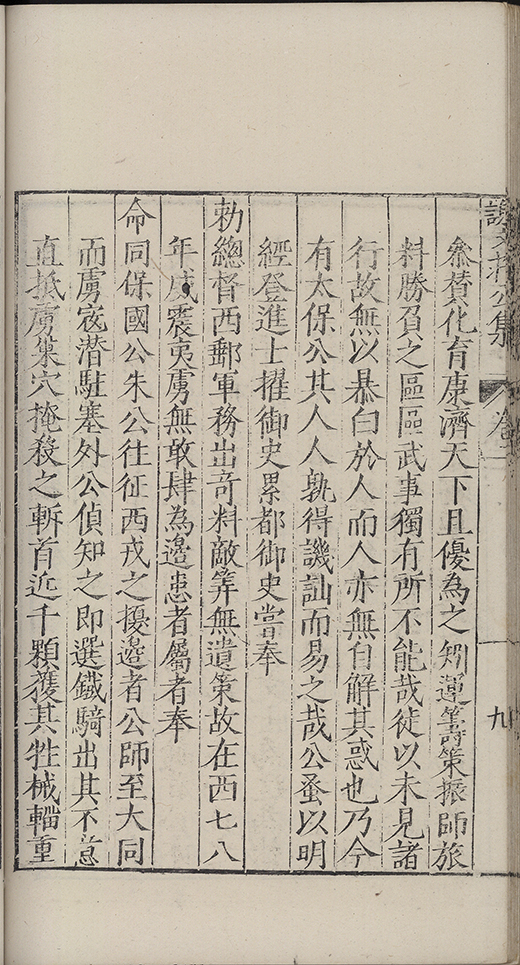 參贊化育康濟天下且優為之矧運籌策振師旅
料勝負之區區武事獨有所不能哉徒以未見諸
行故無以暴白於人而人亦無自解其惑也乃今
有太保公其人人孰得譏訕而易之哉公蚤以明
經登進士擢御史累都御史嘗奉
勑總督西郵軍務出奇料敵筭無遺策故在西七八
年威震夷虜無敢肆為邊患者屬者奉
命同保國公朱公往征西戎之擾邊者公師至大同
而虜寇潛駐塞外公偵知之即選鐵騎出其不意
直抵虜巢穴掩殺之斬首近千顆獲其牲械輜重
文
公集
卷
一
九